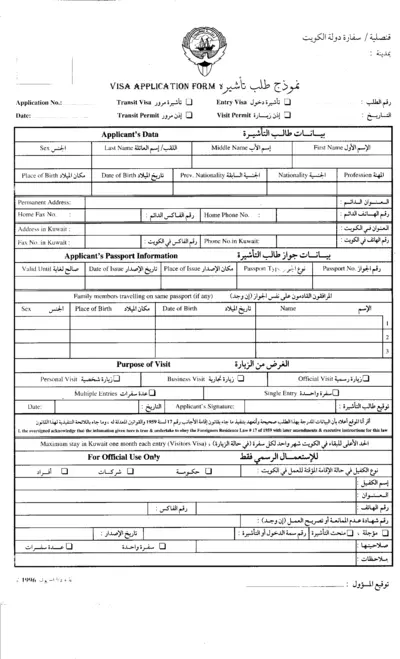 قنصلية / سفارة دولة الكويت
بمدينة :
نموذج طلب تأشيرة VISA APPLICATION FORM
Application No.: Transit Visa تأشيرة مرور Entry Visa تأشيرة دخول رقم الطلب :
Date: Transit Permit إذن مرور Visit Permit إذن زيــارة التــاريــخ :
Applicant's Data بيــانــات طالـب التأشيــرة
Sex الجنس Last Name اللقب/ إسم العائلة Middle Name إسم الأب First Name الإسم الأول
Place of Birth مكان الميلاد Date of Birth تاريخ الميلاد Prev. Nationality الجنسية السابقة Nationality الجنسية Profession المهنة
Permanent Address: العـنــوان الـدائـم :
Home Fax No. : رقم الفـاكس الدائم : Home Phone No. : رقم الهــاتف الدائم :
Address in Kuwait : العنوان في الكويت :
Fax No. in Kuwait: رقم الفاكس في الكويت : Phone No.in Kuwait: رقم الهاتف في الكويت :
Applicant's Passport Information بيــانــات جواز طالب التأشيرة
Valid Until صالح لغاية Date of Issue تاريخ الإصدار Place of Issue مكان الإصدار Passport Type نوع الجواز Passport No. رقم الجواز
Family members travelling on same passport (if any) المرافقون القادمون على نفس الجواز (إن وجد)
Sex الجنس Place of Birth مكان الميلاد Date of Birth تاريخ الميلاد Name الإسم
1
2
3
Purpose of Visit الغرض من الزيارة
Personal Visit زيارة شخصية Business Visit زيارة تجارية Official Visit زيارة رسمية
Multiple Entries عدة سفرات Single Entry سفرة واحـدة
Date: التاريخ : Applicant's Signature: توقيع طالب التأشيرة :
أقر أنا الموقع أعلاه بأن البيانات المدرجة بهذا الطلب صحيحة وأتعهد بتنفيذ ما جاء بقانون إقامة الأجانب رقم 17 لسنة 1959 والقوانين المعدلة له ، وما جاء باللائحة التنفيذية لهذا القانون
Maximum stay in Kuwait one month each entry (Visitors Visa) . الحد الأعلى للبقاء في الكويت شهر واحد لكل سفرة (في حالة الزيارة)
For Official Use Only للإستعمــال الرسمي فقط
أفــراد شـركــات حكـومـية نوع الكفيل في حالة الإقامة المؤقتة للعمل في الكويت :
إسم الكفيل :
العـنــوان :
رقم الفاكس : رقم الهاتف :
رقم شهـادة عـدم الممانعـة أو تصريـح العمـل (إن وجـد) :
تاريخ الإصدار : رقم سمة الدخول أو التأشيرة : منحت التأشيرة مؤجلة
عــدة سفــرات سفـرة واحـدة صـلاحيتهـا :
مـلاحظات :
توقيع المسؤول :